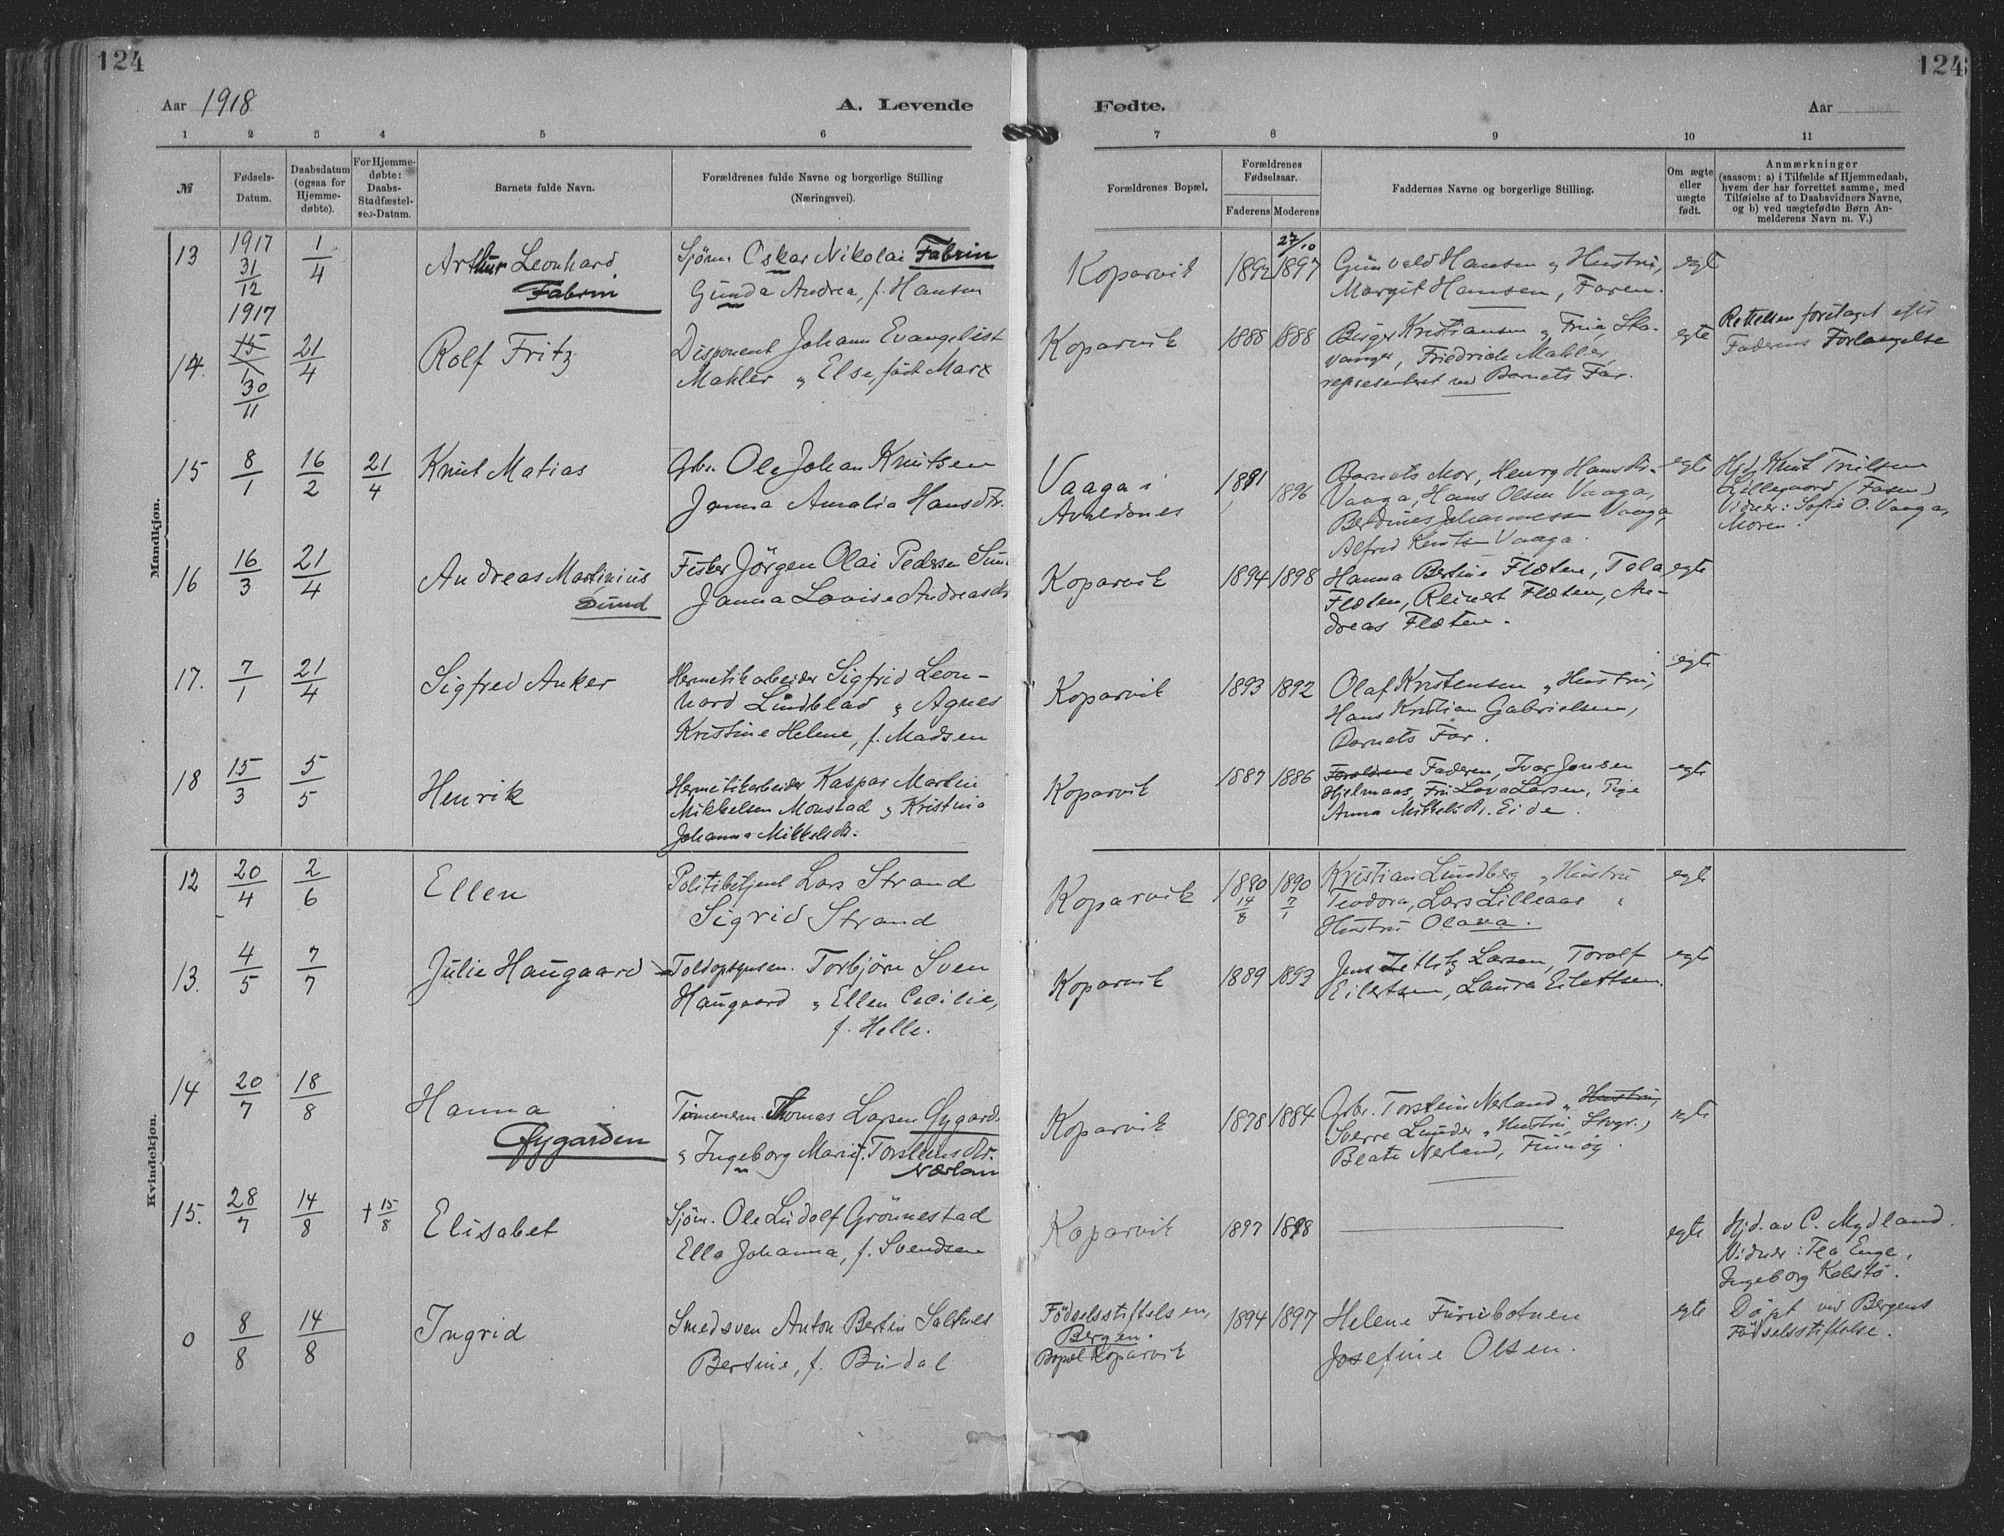 124
124
Aar 1918
A. Levende
Fødte.
Aar
1 2 3 4 5 6 7 8 9 10 11
№
Fødsels-
Datum.
Daabsdatum
(ogsaa for
Hjemme-
døbte).
For Hjemme-
døbte:
Daabs-
Stadfæstel-
ses-Datum.
Barnets fulde Navn.
Forældrenes fulde Navne og borgerlige Stilling
(Næringsvei).
Forældrenes Bopæl.
Forældrenes
Fødselsaar.
Faderens Moderens
Faddernes Navne og borgerlige Stilling.
Om ægte
eller
uægte
født.
Anmærkninger
(saasom: a) i Tilfælde af Hjemmedaab,
hvem der har forrettet samme, med
Tilføielse af to Daabsvidners Navne,
og b) ved uægtefødte Børn An-
melderens Navn m. V.)
Mandkjøn.
13
1917
31/12
1/4
Arthur Leonhard
Fabrin
Sjøm. Oskar Nikolai Fabrin
Gunda Andrea, f. Hansen
Koparvik
1892
27/10
1897
Gunvald Hansen og Hustru,
Margit Hansen, Faren.
egt
14.
1917
15/1
30/11
21/4
Rolf Fritz
Disponent Johann Evangelist
Mahler og Else, født Marx
Koparvik
1888 1888
Birger Kristiansen og Frue, Sta-
vanger, Friedrich Mahler,
representeret ved Barnets Far.
egte
Rettelsen foretaget efter
Faderens Forlangelse
15
8/1
16/2
21/4
Knut Matias
Gbr. Ole Johan Knutsen
Janna Amalia Hansdtr.
Vaaga i
Avaldsnes
1891
1896
Barnets Mor, Henry Hansen
Vaaga, Hans Olsen Vaaga,
Berdines Johannessen Vaaga,
Alfred Knutsen Vaaga.
egte
Hjd. Knut
Lillegaard
Vidner: Sofie O. Vaaga,
Moren.
16
16/3
21/4
Andreas Martinius
Sund
Fisker Jørgen Olai Pedersen Sund
Janna Lovise Andreasdtr
Koparvik
1894 1898
Hanna Bertine Fløten, Tala
Fløten, Reinert Fløten, An-
dreas Fløten.
egte
17.
7/1
21/4
Sigfred Anker
Hermetikarbeider Sigfrid Leon-
hard Lindblad og Agnes
Kristine Helene, f. Madsen
Koparvik
1893 1892
Olaf Kristensen og Hustru,
Hans Kristian Gabrielsen,
Barnets Far.
egte
18
15/3
5/5
Henrik
Hermetikarbeider Kaspar Martin
Mikkelsen Monstad og Kristina
Johanna Mikkelsdtr.
Koparvik
1887 1886
Forældrene Faderen, Ivar Jonsen
Hjelmaas, Fru Lova Larsen, Pige
Anna Mikkelsdtr. Eide.
egte
Kvindekjøn.
12
20/4
2/6
Ellen
Politibetjent Lars Strand
Sigrid Strand
Koparvik
1880
14/8
1890
7/1
Kristian Lundberg og Hustru
Teodora, Lars Lilleaas
Hustru Olava.
egte
13.
4/5
7/7
Julie Haugaard
Toldopsynsm. Torbjørn Sven
Haugaard og Ellen Cecilie,
f. Helle.
Koparvik
1889 1893
Jens Zetlitz Larsen, Torolf
Eilertsen, Laura Eilertsen.
egte
14
20/7
18/8
Hanna
Øygarden
Tømmerm. Thomas Larsen Øygard
og Ingeborg Marie f. Torsteinsdtr.
Nærland
Koparvik
1878 1884
Gbr. Torstein Nerland og Hustru,
Sverre Lunder og Hustru, Stvgr.,
Beate Nerland, Finnøy
egte
15.
28/7
14/8
† 15/8
Elisabet
Sjøm. Ole Ludolf Grønnestad
Ella Johanna, f. Svendsen
Koparvik
1897 1898
egte
Hjd. av C. Mydland.
Vidner: Tea Enge,
Ingeborg Kolstø.
0
8/8
14/8
Ingrid
Smedsven Anton Bertin Saltnes
Bertine, f. Birdal
Fødselsstiftelsen,
Bergen.
Bopæl Koparvik
1894 1897
Helene Furubotnen
Josefine Olsen.
egte
Døpt ved Bergens
Fødselsstiftelse.